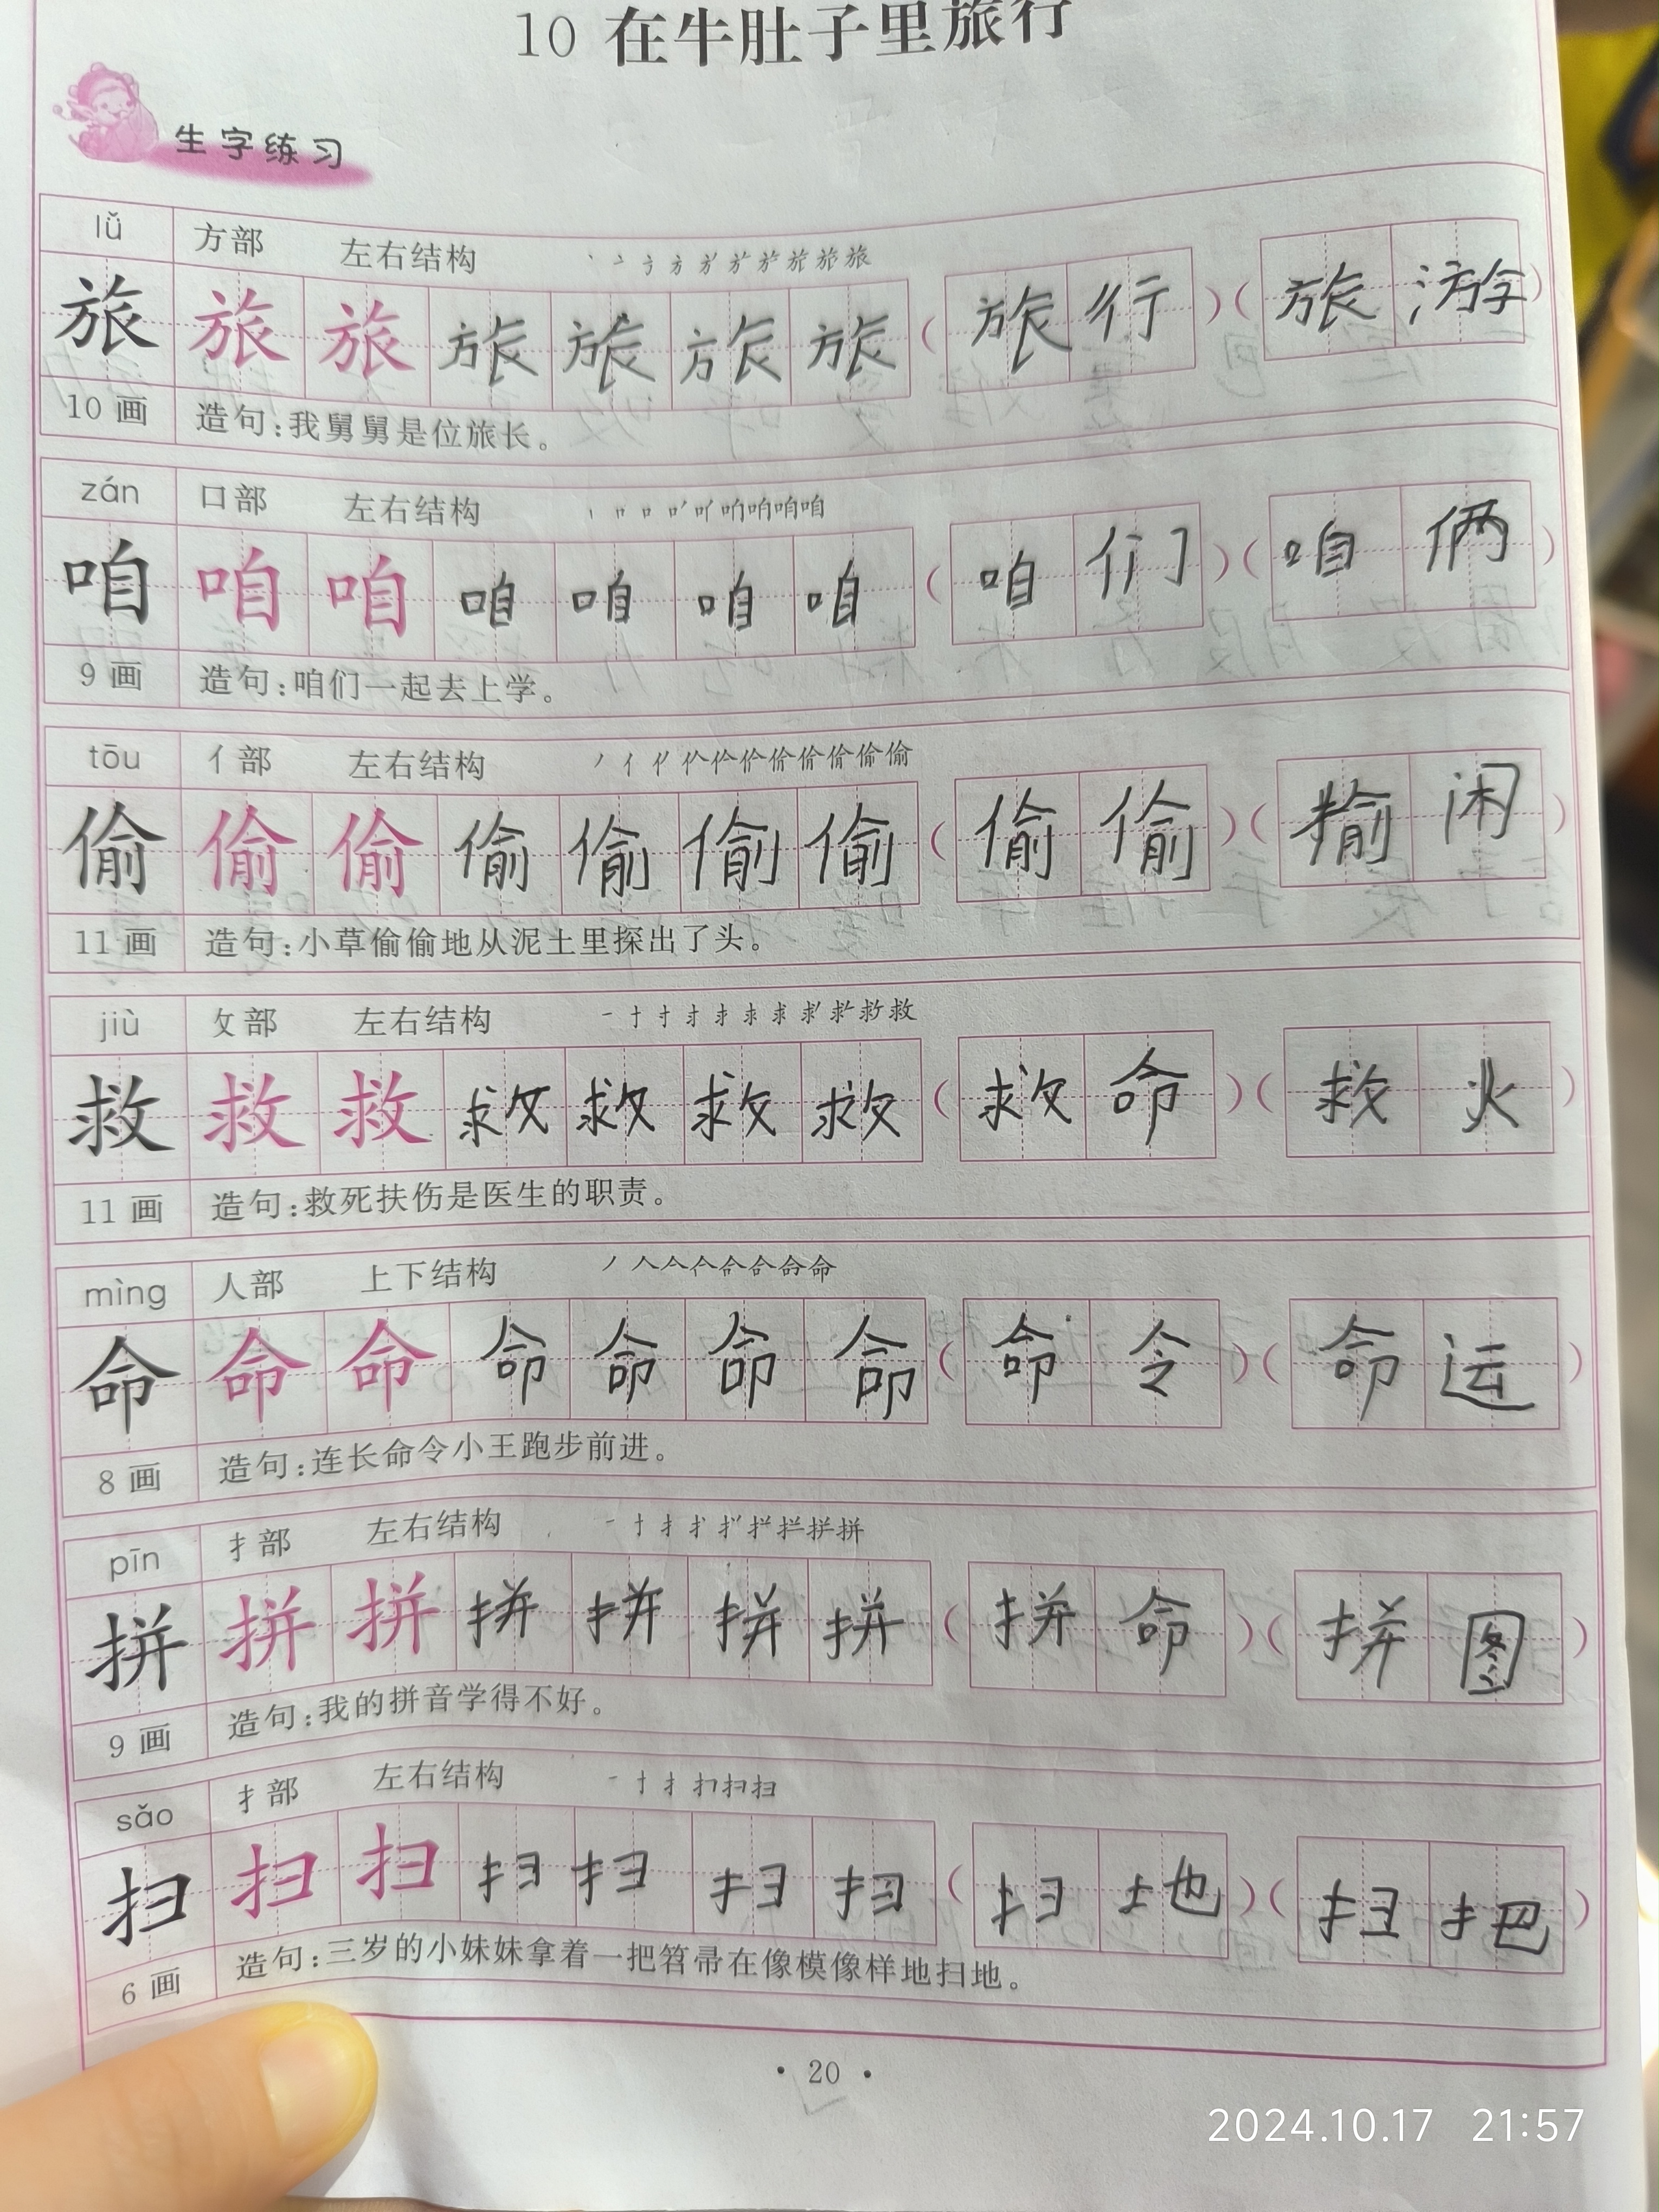 10 在牛肚子里旅行
生字练习
lǚ 方部 左右结构 丶 亠 方 方 旅 旅
旅 旅 旅 旅 旅 旅 旅 (旅行)(旅游)
10画 造句:我舅舅是位旅长。
zán 口部 左右结构 咱咱咱
咱 咱 咱 咱 咱 咱 咱 (咱们)(咱俩)
9画 造句:咱们一起去上学。
tōu 亻部 左右结构 丿 亻 偷
偷 偷 偷 偷 偷 偷 偷 (偷偷)(闲)
11画 造句:小草偷偷地从泥土里探出了头。
jiù 攵部 左右结构 一 十 求 救
救 救 救 救 救 救 救 (救命)(救火)
11画 造句:救死扶伤是医生的职责。
mìng 人部 上下结构 丿 人 亼 合 命
命 命 命 命 命 命 命 (命令)(命运)
8画 造句:连长命令小王跑步前进。
pīn 扌部 左右结构 一 十 扌 拼拼
拼 拼 拼 拼 拼 拼 拼 (拼命)(拼图)
9画 造句:我的拼音学得不好。
sǎo 扌部 左右结构 一 十 扌 扫扫
扫 扫 扫 扫 扫 扫 扫 (扫地)(扫把)
6画 造句:三岁的小妹妹拿着一把笤帚在像模像样地扫地。
· 20 ·
2024.10.17 21:57